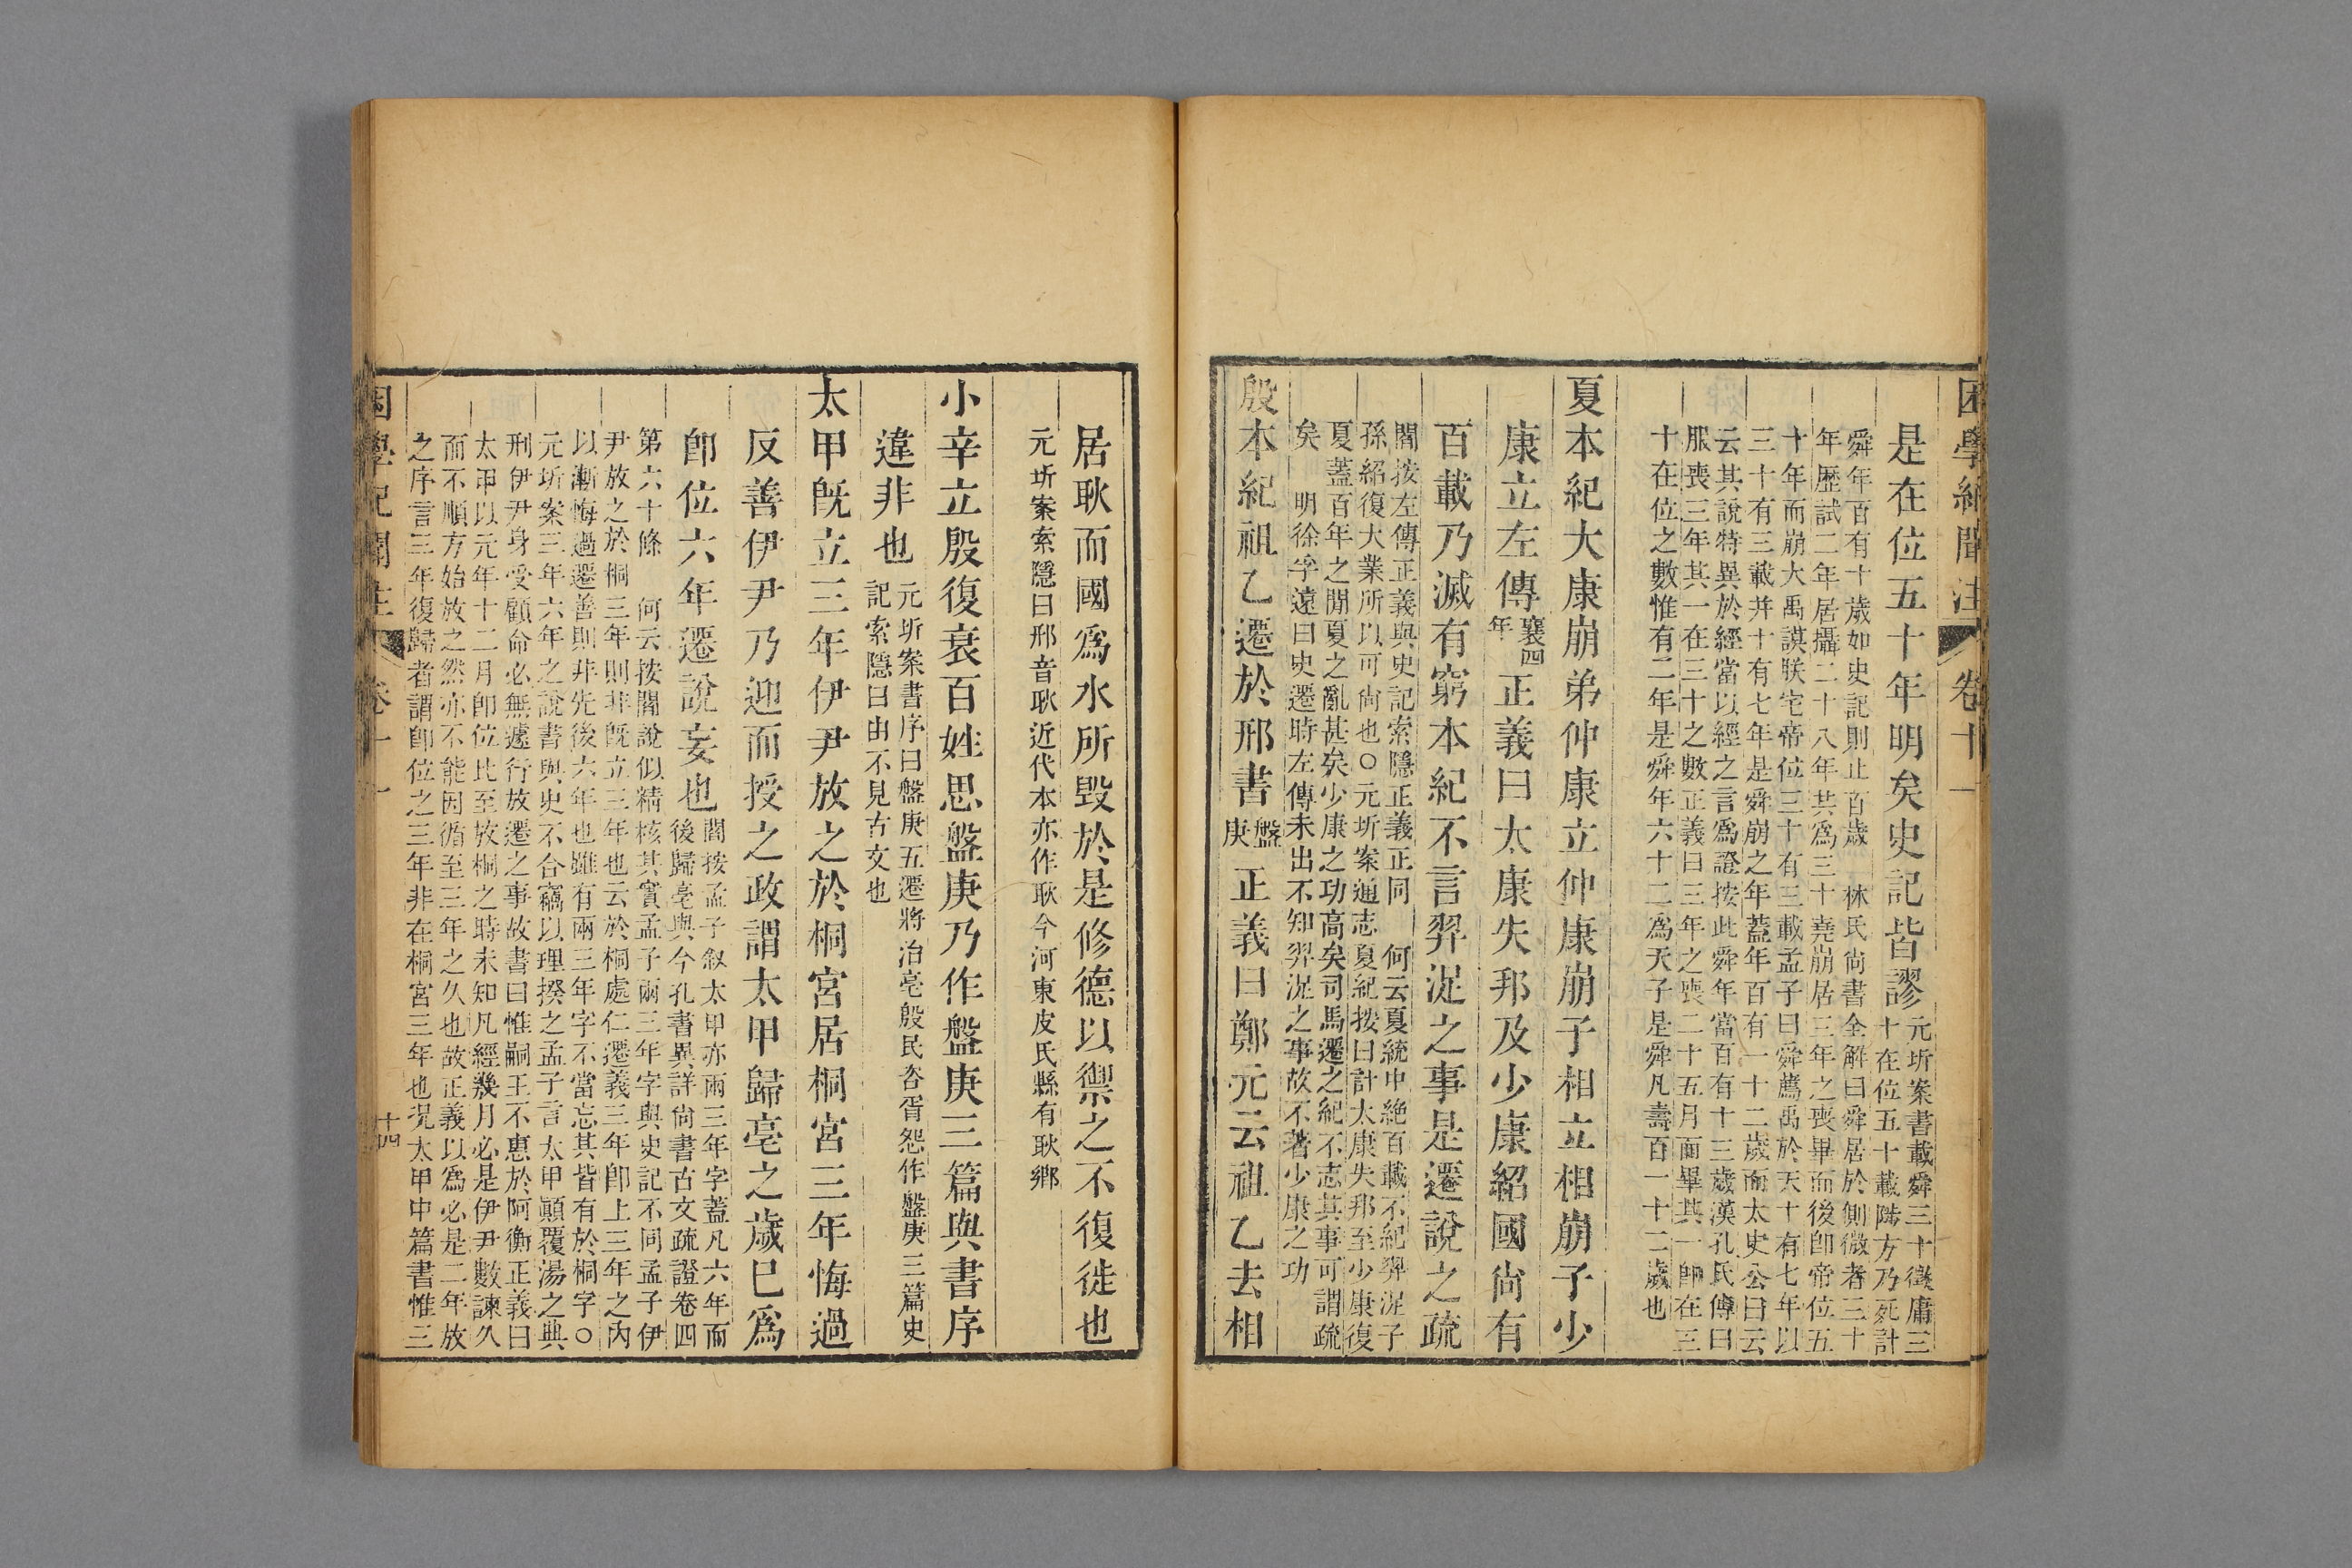 困學紀聞注 卷十一
是在位五十年明矣史記皆謬元圻案書載舜三十徵庸三
十在位五十載陟方乃死計
舜年百有十歲如史記則止百歲 林氏尚書全解曰舜居於側微者三十
年歷試二年居攝二十八年共爲三十堯崩居三年之喪畢而後卽帝位五
十年而崩大禹謨朕宅帝位三十有三載孟子曰舜薦禹於天十有七年以
三十有三載幷十有七年是舜崩之年蓋年百有一十二歲而太史公曰云
云其說特異於經當以經之言爲證按此舜年當百有十三歲漢孔氏傳曰
服喪三年其一在三十之數正義曰三年之喪二十五月而畢其一卽在三
十在位之數惟有二年是舜年六十二爲天子是舜凡壽百一十二歲也
夏本紀大康崩弟仲康立仲康崩子相立相崩子少
康立左傳襄四年正義曰太康失邦及少康紹國尚有
百載乃滅有窮本紀不言羿浞之事是遷說之疏
閻按左傳正義與史記索隱正義正同 何云夏統中絶百載不紀羿浞子
孫紹復大業所以可尚也○元圻案通志夏紀按曰計太康失邦至少康復
夏蓋百年之閒夏之亂甚矣少康之功高矣司馬遷之紀不志其事可謂疏
矣 明徐孚遠曰史遷時左傳未出不知羿浞之事故不著少康之功
殷本紀祖乙遷於邢書盤庚正義曰鄭元云祖乙去相
居耿而國爲水所毀於是修德以禦之不復徙也
元圻案索隱曰邢音耿近代本亦作耿今河東皮氏縣有耿鄉
小辛立殷復衰百姓思盤庚乃作盤庚三篇與書序
違非也元圻案書序曰盤庚五遷將治亳殷民咨胥怨作盤庚三篇史
記索隱曰由不見古文也
太甲旣立三年伊尹放之於桐宮居桐宮三年悔過
反善伊尹乃迎而授之政謂太甲歸亳之歲已爲
卽位六年遷說妄也閻按孟子叙太甲亦兩三年字蓋凡六年而
後歸亳與今孔書異詳尚書古文疏證卷四
第六十條 何云按閻說似精核其實孟子兩三年字與史記不同孟子伊
尹放之於桐三年則非旣立三年也云於桐處仁遷義三年卽上三年之內
以漸悔過遷善則非先後六年也雖有兩三年字不當忘其皆有於桐字○
元圻案三年六年之說書與史不合竊以理揆之孟子言太甲顚覆湯之典
刑伊尹身受顧命必無遽行放遷之事故書曰惟嗣王不惠於阿衡正義曰
太甲以元年十二月卽位比至放桐之時未知凡經幾月必是伊尹數諫久
而不順方始放之然亦不能因循至三年之久也故正義以爲必是二年放
之序言三年復歸者謂卽位之三年非在桐宮三年也況太甲中篇書惟三
困學紀聞注 卷十一 十四